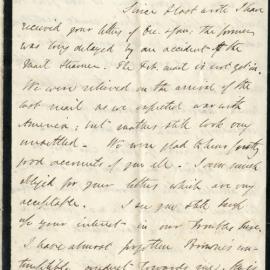 Since I last wrote I have
received your letters of Dec & Jan; the former
was long delayed by an accident to the
Mail Steamer. The Feb. mail is not yet in.
We were relieved on the arrival of the
last mail as we expected war with
America; but matters still look very
unsettled. We were glad to hear
good accounts of you all. I am much
obliged for your letters which are very
acceptable. I see you still keep
up your interest in our troubles here.
I have almost forgotten Browne's
conduct towards me.